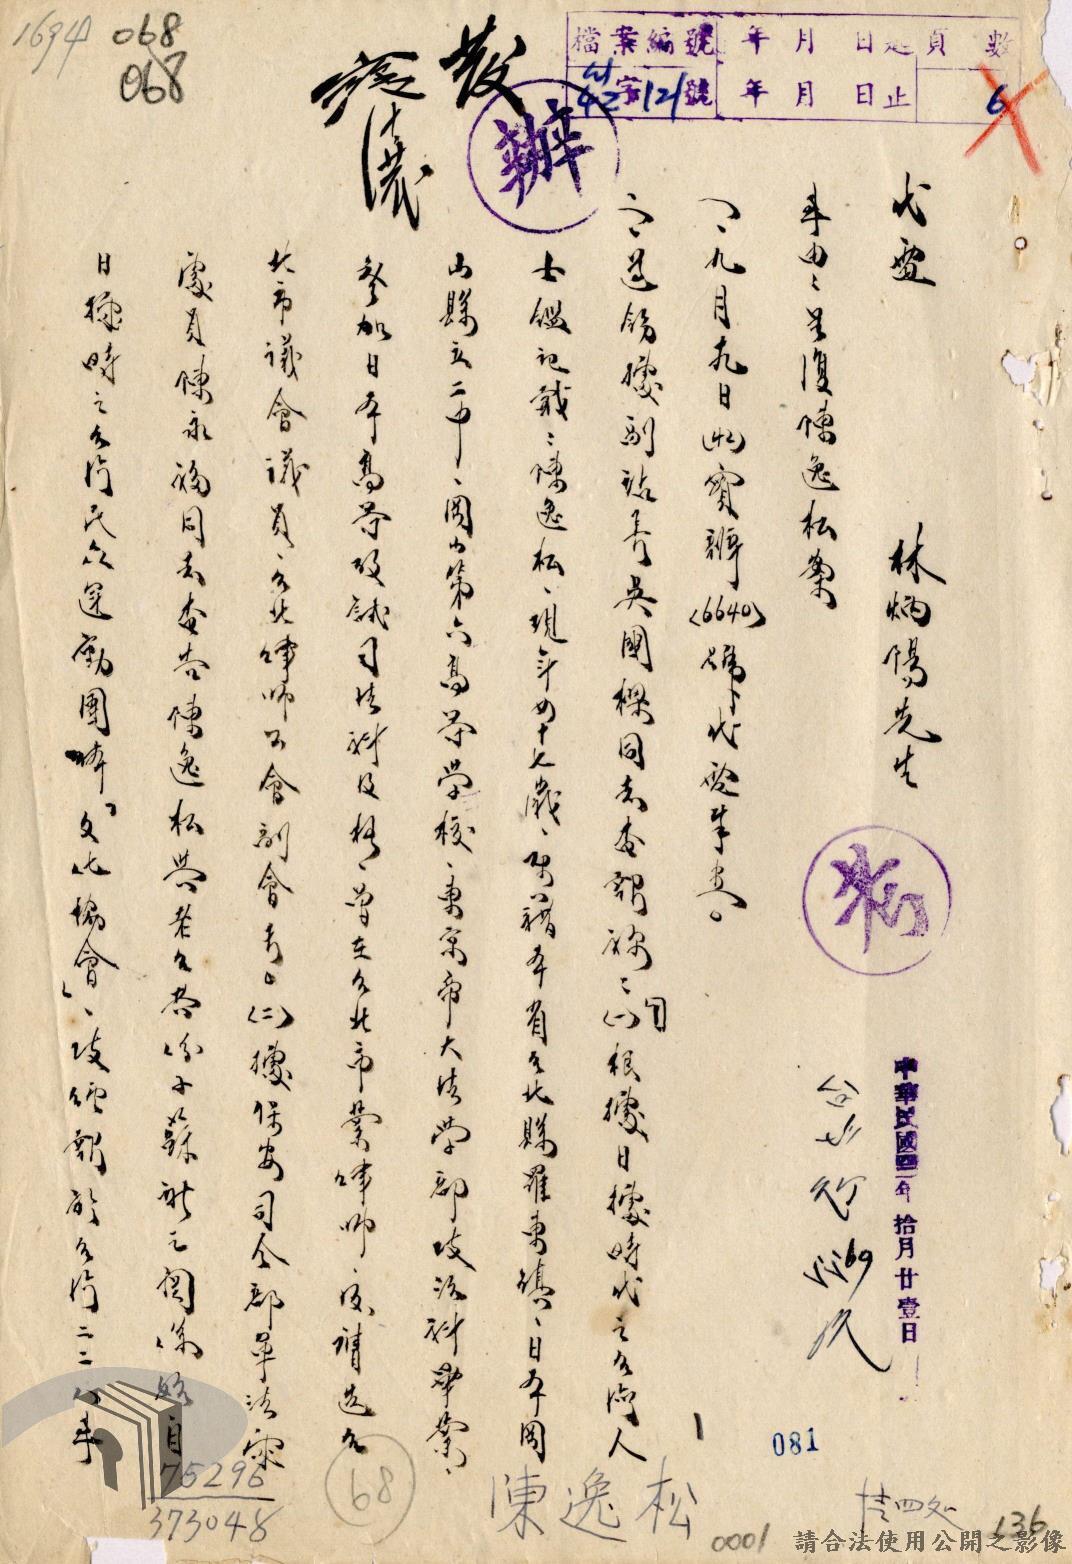 1694
068
068
檔案編號 年 月 日起 頁數
42字121號 年 月 日止 6
辦
代電
林炳陽先生
中華民國四二年拾月廿壹日
事由：呈復陳逸松案
一、九月九日(42)實辦(6640)號代電奉悉。
二、遵飭據副站長吳國樑同志查報稱：(一)根據日據時代之台灣人
士鑑記載：陳逸松、現年四十七歲、原籍本省台北縣羅東鎮、日本岡
山縣立二中、岡山第六高等學校、東京帝大法學部政治科畢業、
參加日本高等攷試司法科及格、曾在台北市業律師、後膺選台
北市議會議員、台北律師公會副會長。(二)據保安司令部軍法處
處員陳永福同志查告陳逸松與老台共份子蘇新之關係頗自
日據時之台灣民众運動團体「文化協會」、攷經報於台灣二二八事
081
68
75296
373048
陳逸松
0001
136
請合法使用公開之影像